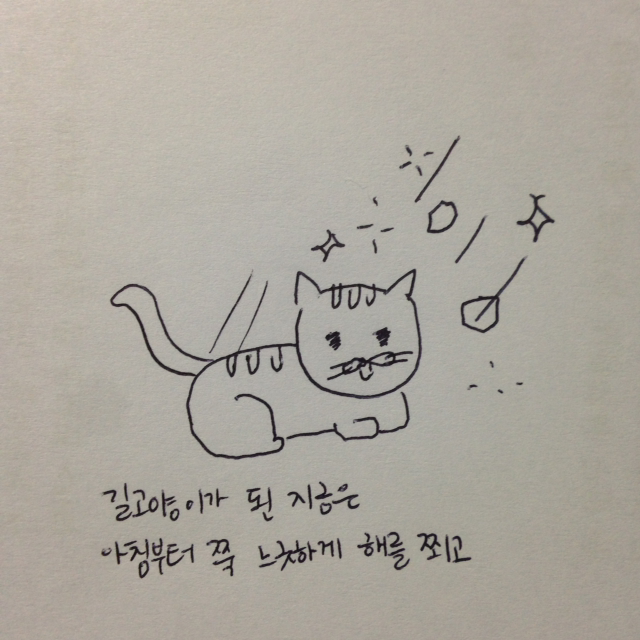 길고양이가 된 지금은
아침부터 쭉 느긋하게 해를 쬐고